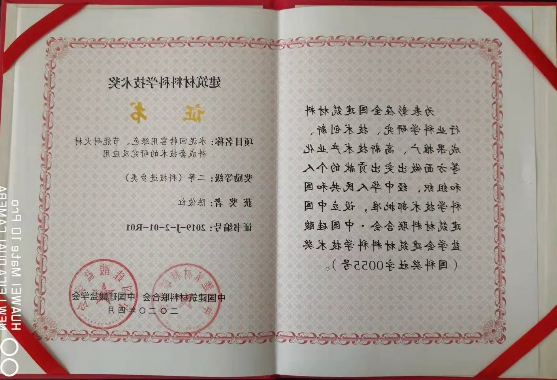 为表彰在全国建筑材料
行业科学研究、技术创新、
成果推广、高新技术产业化
等方面做出突出贡献的个人
和组织，经中华人民共和国
科学技术部批准，设立中国
建筑材料联合会·中国硅酸
盐学会建筑材料科学技术奖
（国科奖社字0055号）。
建筑材料科学技术奖
证 书
项目名称：水泥回转窑用绿色、节能耐火材
料成套技术的研究及应用
奖励等级：二等（科技进步类）
获 奖 者：陈俊红
证书编号：2019-J-2-01-R01
中国建筑材料联合会 中国硅酸盐学会
二〇二〇年四月
HUAWEI Mate 10 Pro